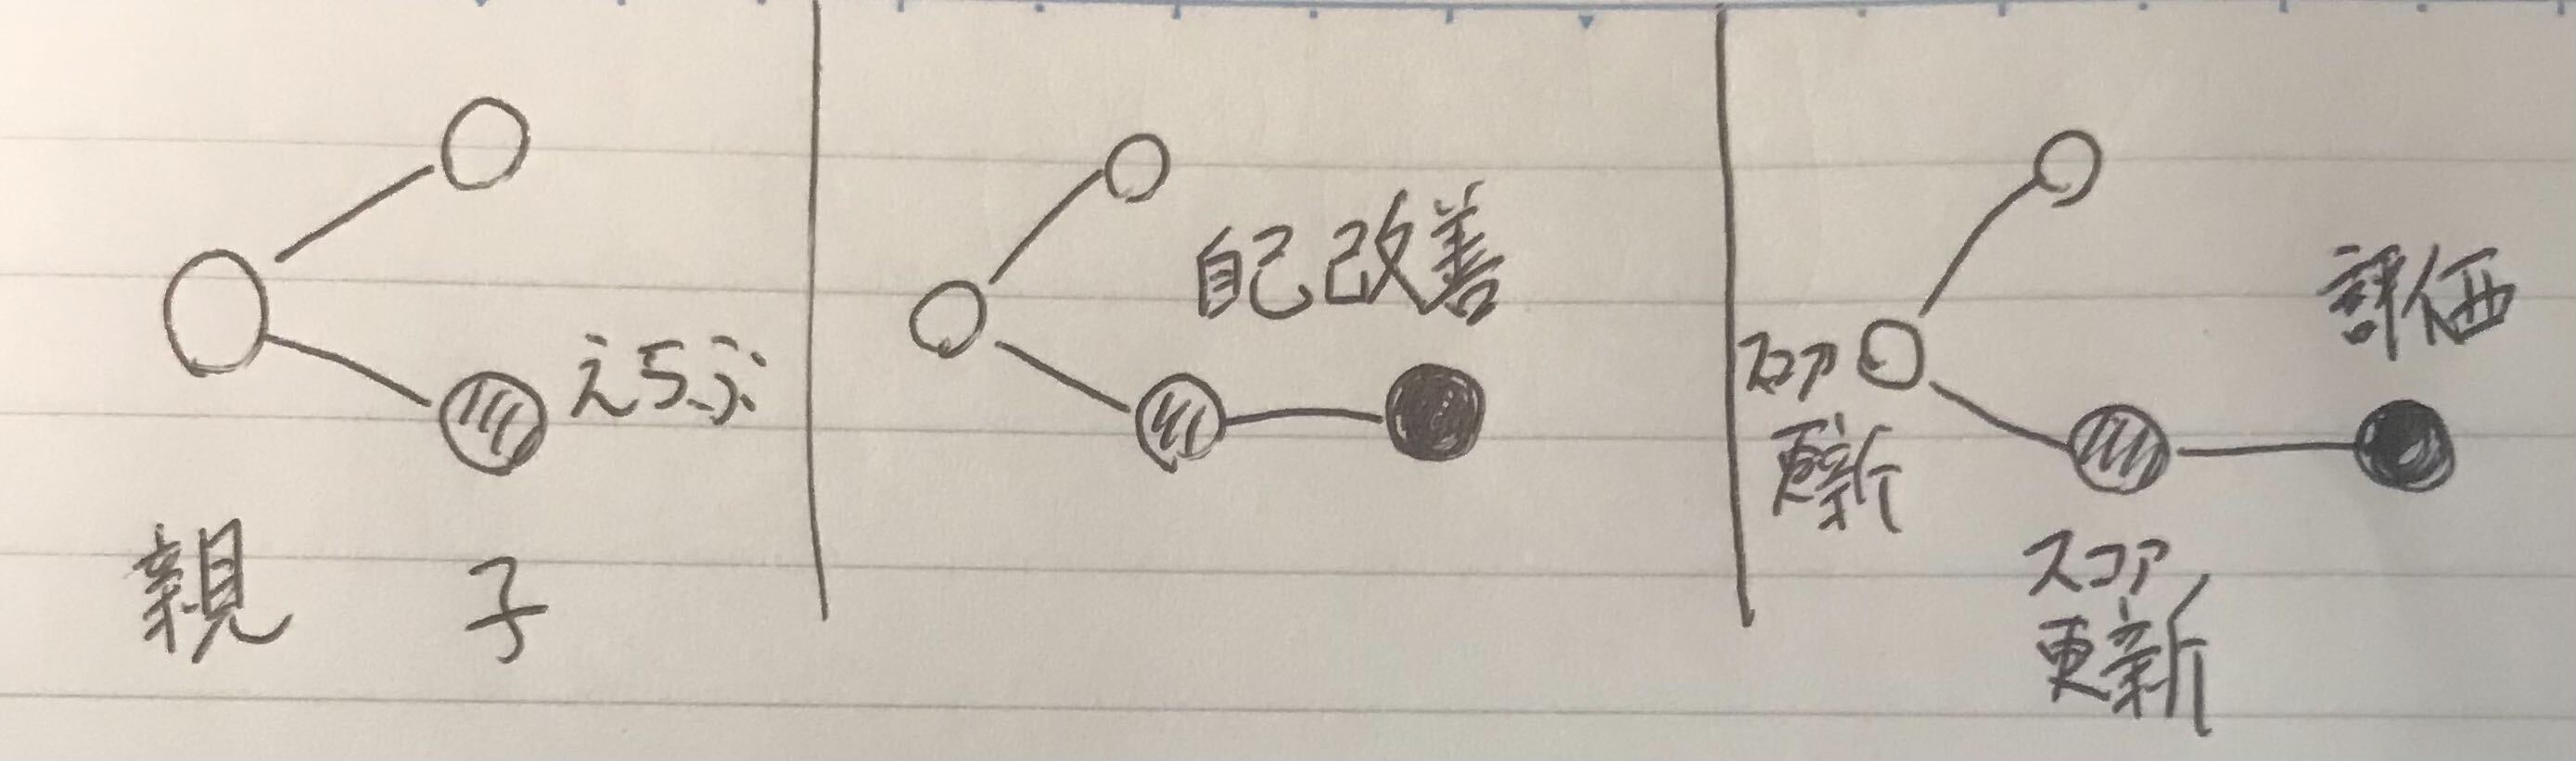 えらぶ
親 子
自己改善
評価
スコア
更新
スコア
更新